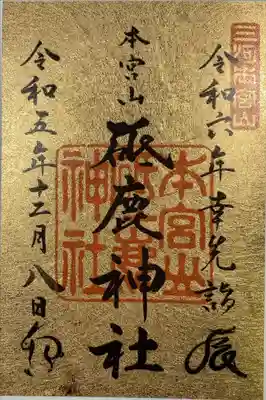 三河本宮山
令和六年 幸先詣 辰
本宮山
砥鹿神社
本宮山
神社
令和五年十二月八日